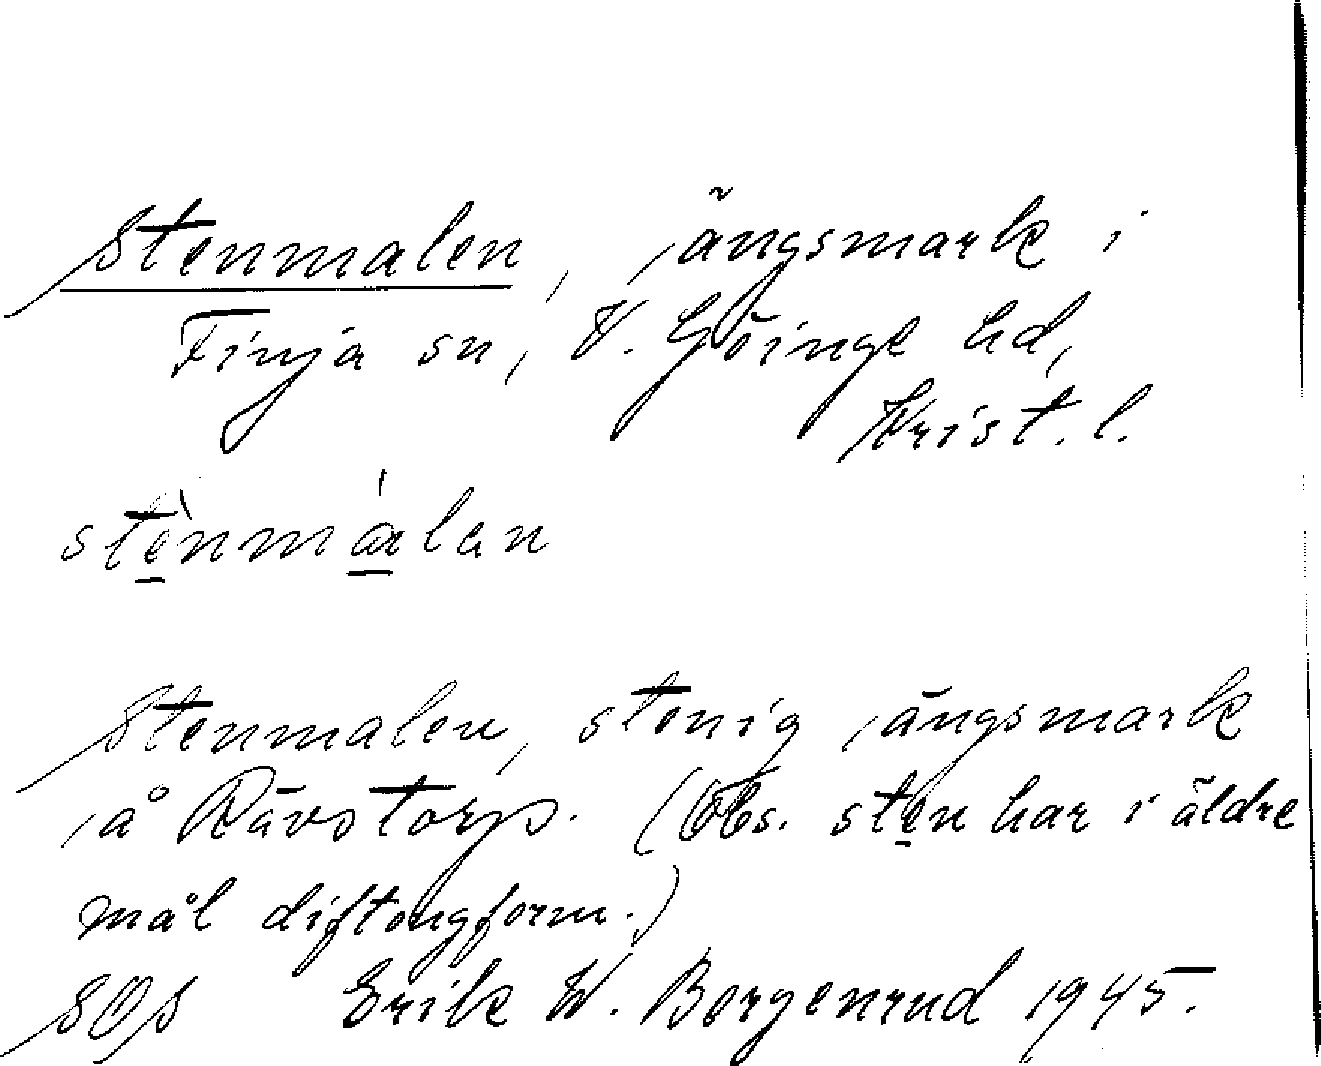 Stenmalen, ängsmark i
Finja sn, V. Göinge hd,
Krist. l.
stènmálan
Stenmalen, stenig ängsmark
å Rävstorp. (Obs. sten har i äldre
mål diftongform.)
SOS Erik W. Borgenrud 1945.